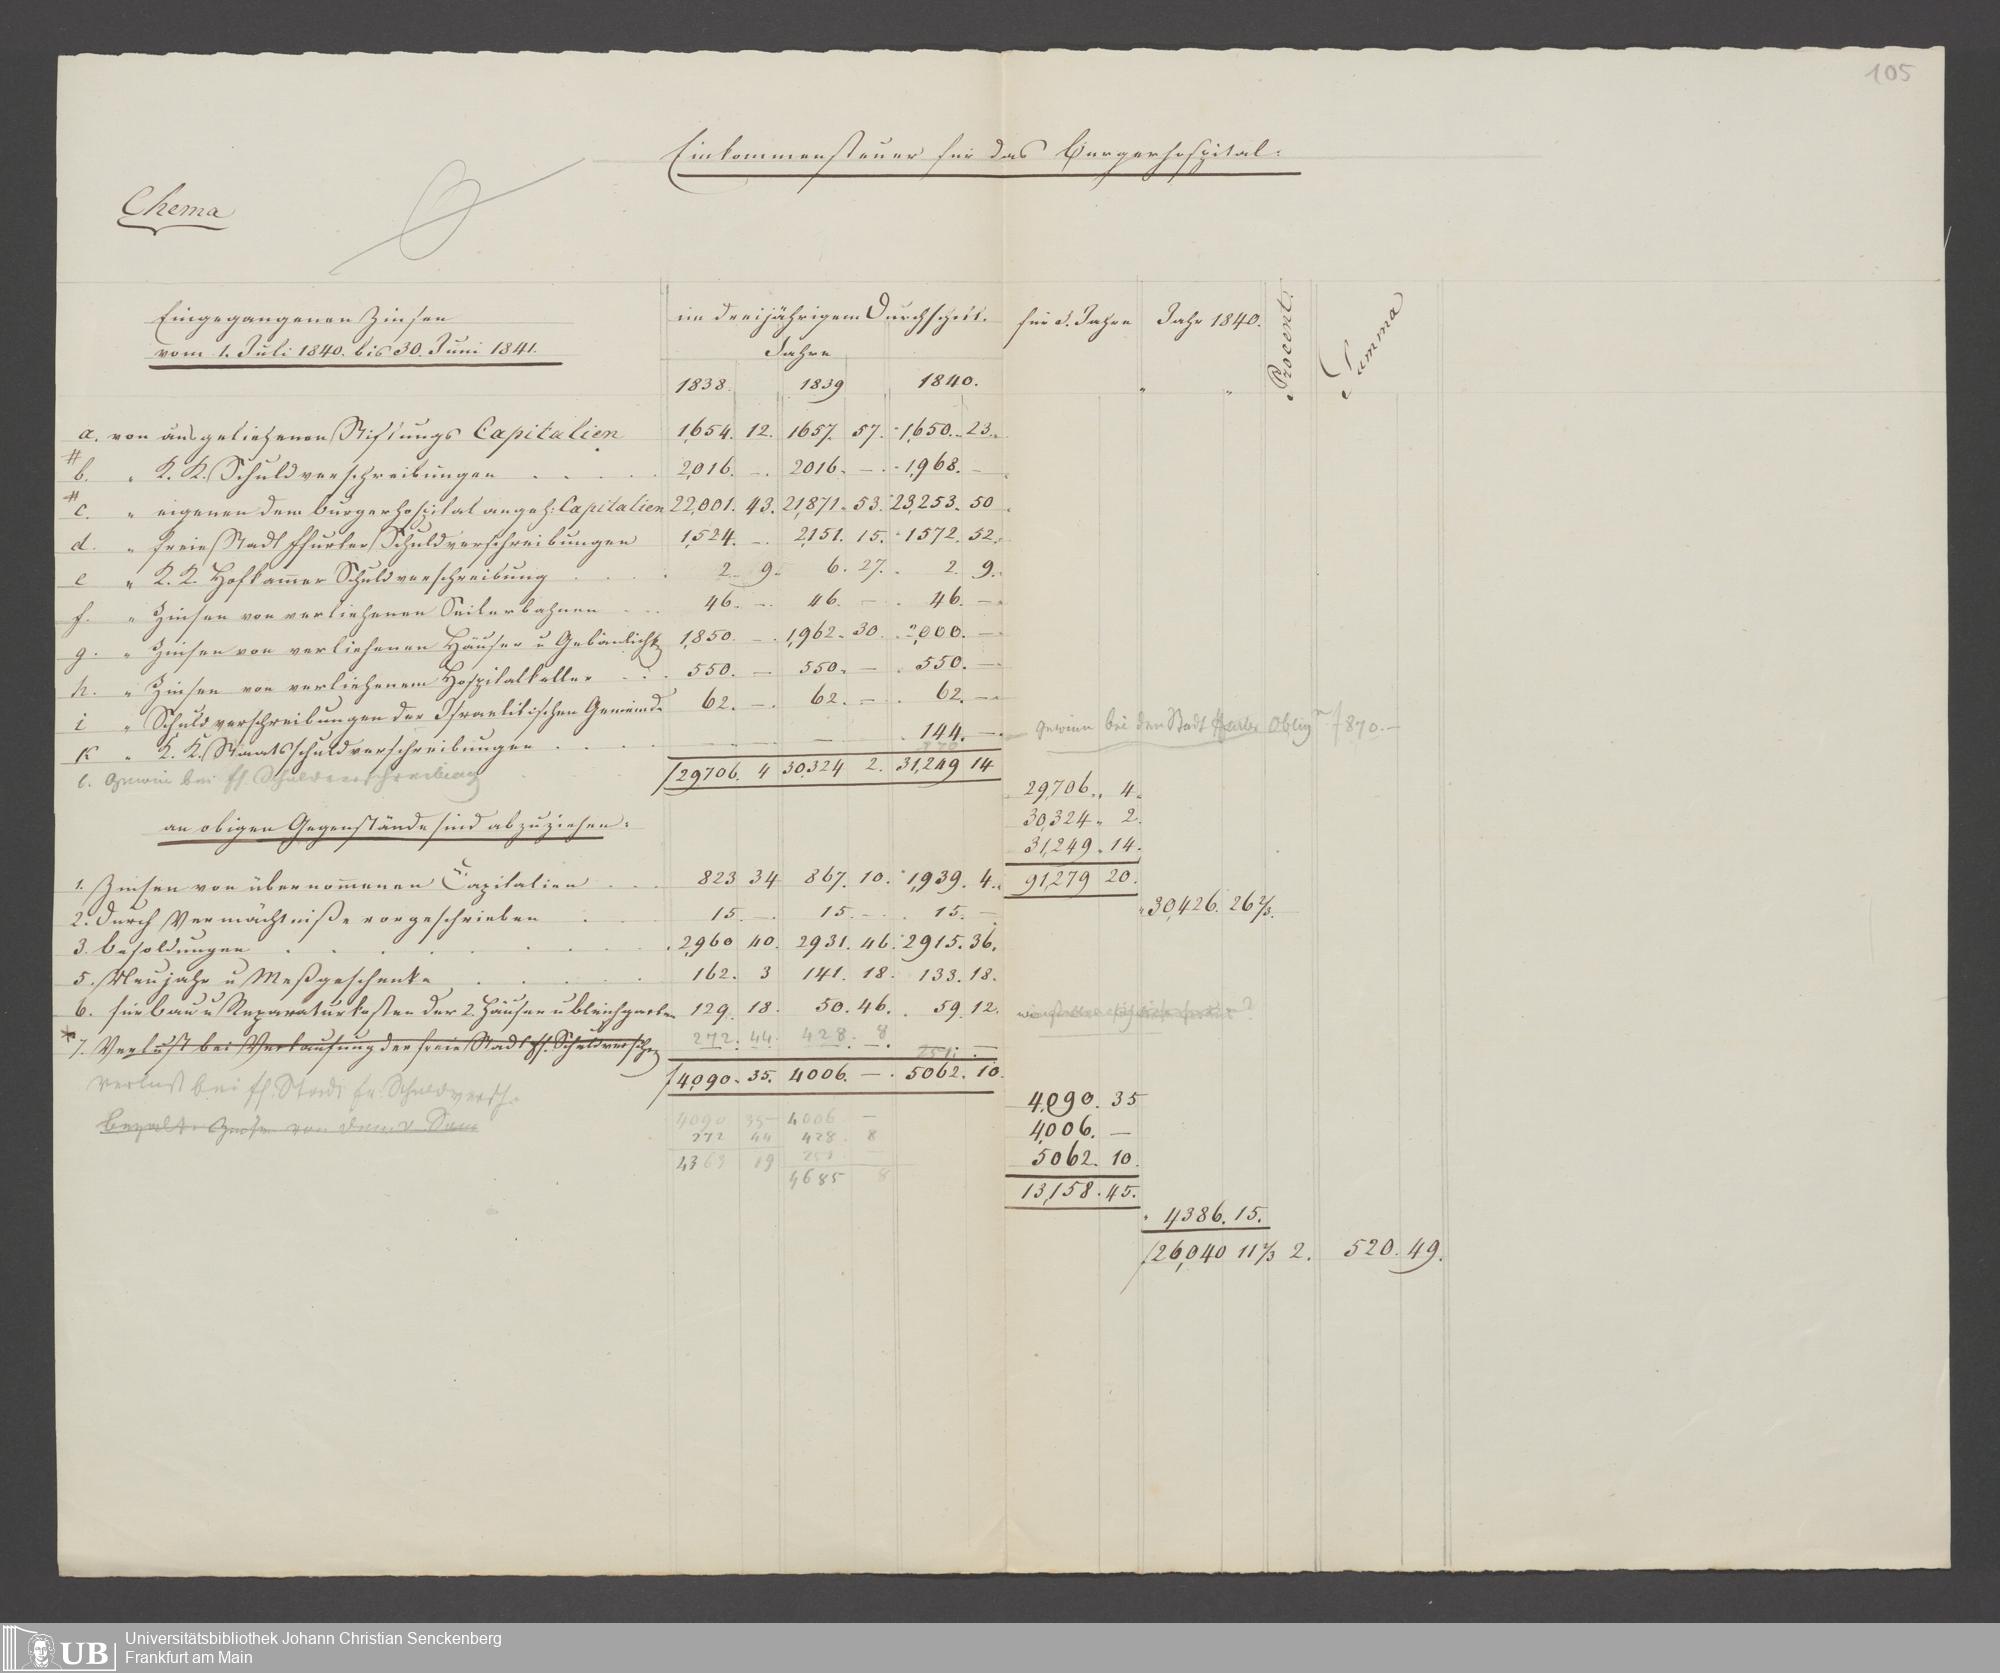 105
Einkommensteuer für das Bürgerhospital.
Chema
Eingegangenen Zinsen
vom 1. Juli 1840. bis 30. Juni 1841.
im dreijährigem Durchschnit.
Jahre
1838. 1839 1840.
für 3. Jahre
Jahr 1840.
Procent.
Summa
a. von ausgeliehenen Stiftungs Capitalien 1,654. 12. 1657. 57. 1,650. 23.
# b. " K. K. Schuldverschreibungen 2,016. — 2016. — 1,968. —
# c. " eigenen dem Bürgerhospital angeh: Capitalien 22,001. 43. 21,871. 53. 23,253. 50
d. " freie Stadt ffurter Schuldverschreibungen 1,524. — 2,151. 15. 1572. 52.
e " K. K. Hofkammer Schuldverschreibung 2. 9. 6. 27. 2. 9.
f. " Zinsen von verliehenen Seilerbahnen 46. — 46. — 46. —
g. " Zinsen von verliehenen Häuser u Gebäulichk 1,850. — 1,962. 30. 2,000. —
h. " Zinsen von verliehenem Hospitalkeller 550. — 550. — 550. —
i " Schuldverschreibungen der Israelitischen Gemeinde 62. — 62. — 62. —
K " K. K. Staatsschuldverschreibungen — — 144. —
Gewinn bei den Stadt Oblig f 870. —
l. Gewinn bei ff. Schuldverschreibung
f 29706. 4 30,324 2. 31,249 14
29,706. 4.
30,324. 2.
31,249. 14.
91,279 20.
30,426. 26 2/3.
an obigen Gegenstände sind abzuziehen:
1. Zinsen von übernommenen Capitalien 823 34 867. 10. 1,939. 4.
2. durch Vermächtniße vorgeschrieben 15. — 15. — 15. —
3. Besoldungen 2,960 40. 2931. 46. 2915. 36.
5. Neujahr u Meßgeschenke 162. 3 141. 18. 133. 18.
6. für Bau u Reparaturkosten der 2. Häuser u Bleichgarten 129. 18. 50. 46. 59. 12.
* 7. Verlust bei Verkaufung der freie Stadt ff. Schuldversch 272. 44. 428. 8 251. —
f 4,090. 35. 4006. — 5062. 10.
Verlust bei ff. Stadt Schuldversch.
Bezalt Zinse von
4090 35 4006 —
272 44 428. 8
251. —
4363 19
4685 8
4,090. 35
4,006. —
5062. 10.
13,158. 45.
4386. 15.
f 26,040 11 2/3 2. 520. 49.
UB
Universitätsbibliothek Johann Christian Senckenberg
Frankfurt am Main